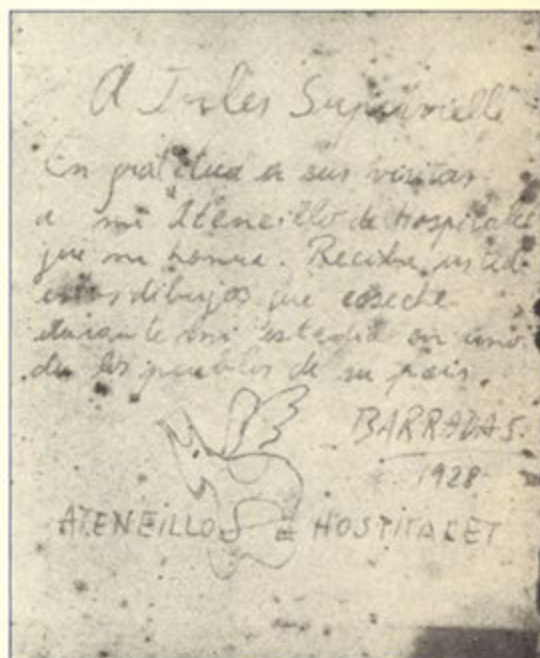 A Jules Supervielle
En gratitud a sus visitas
a mi Ateneillo de Hospitalet
que me honra. Reciba usted
estos dibujos que coseché
durante mi estadía en uno
de los pueblos de su país.
BARRADAS.
1928
ATENEILLO DE HOSPITALET